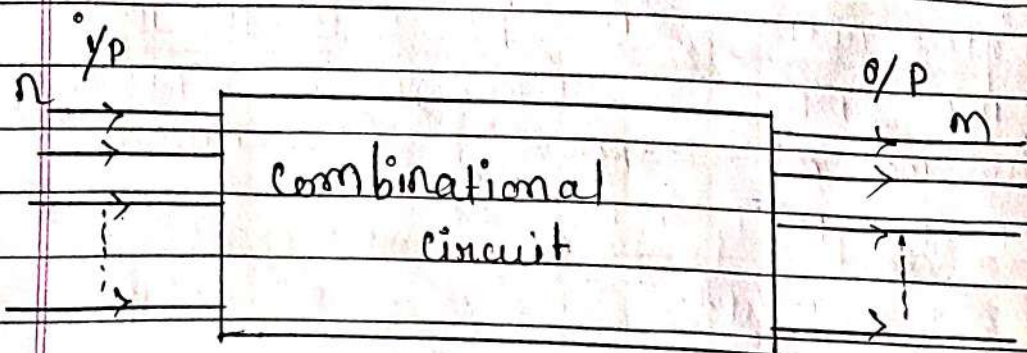 i/p
o/p
n
m
Combinational
circuit